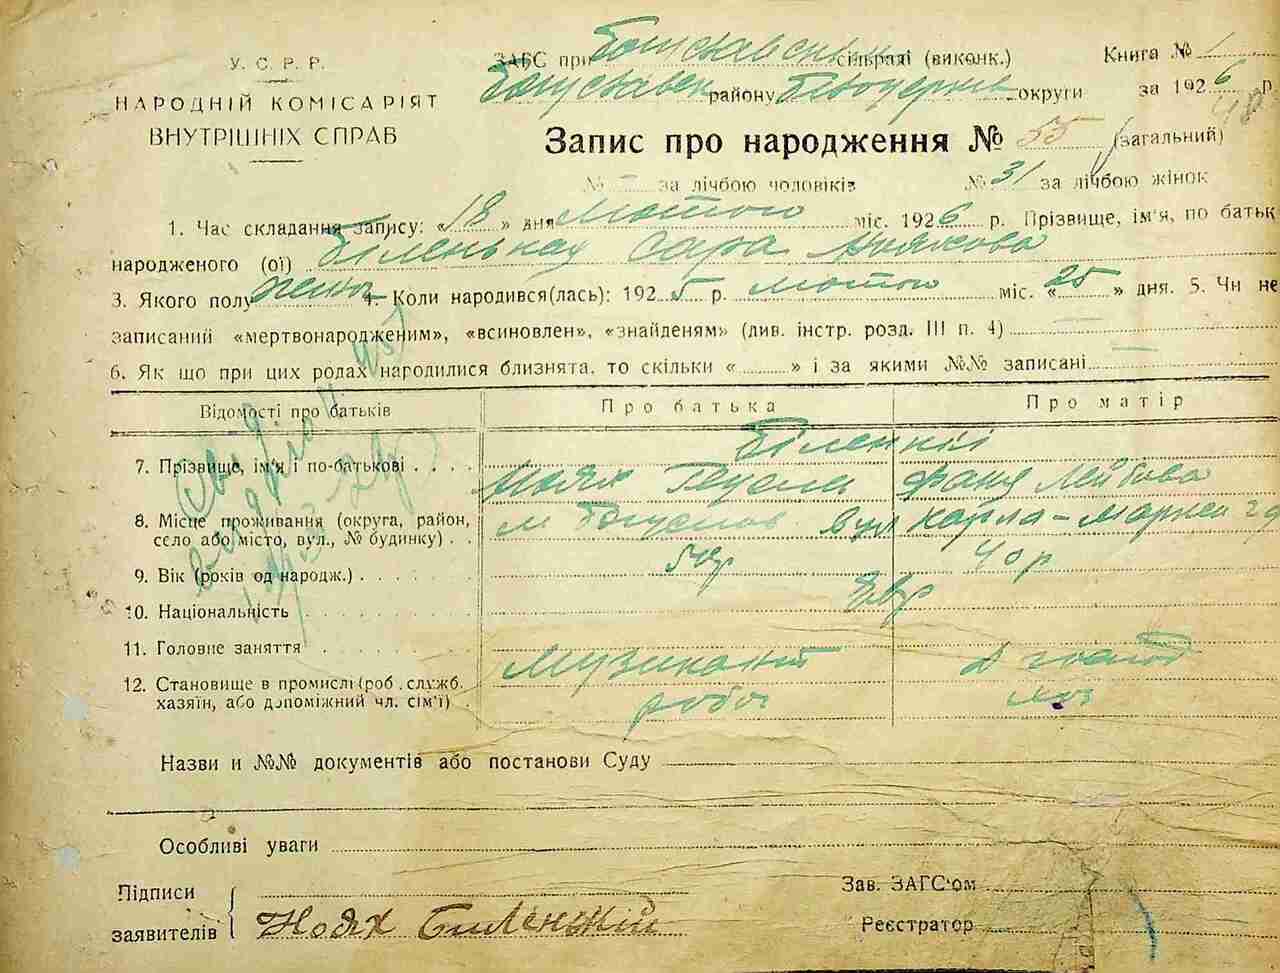 У. С. Р. Р.
НАРОДНІЙ КОМІСАРІЯТ
ВНУТРІШНІХ СПРАВ
ЗАГС при Богуславській сільраді (виконк.) Книга № 1
Богуславськ району Білоцерків округи за 1926 р.
Запис про народження № 55 (загальний)
№ — за лічбою чоловіків № 31 за лічбою жінок
1. Час складання запису: «18» дня лютого міс. 1926 р. Прізвище, ім'я, по батьк
народженого (ої) Біленька Сара Нояхова
3. Якого полу жіноч 4. Коли народився(лась): 1925 р. лютого міс. «25» дня. 5. Чи не
записаний «мертвонародженим», «всиновлен», «знайденям» (див. інстр. розд. III п. 4)
6. Як що при цих родах народилися близнята, то скільки «......» і за якими №№ записані
Відомості про батьків Про батька Про матір
Біленькі
7. Прізвище, ім'я і по-батькові Ноях Фаня Лейбова
8. Місце проживання (округа, район, м Богуслав вул Карла-Маркса
село або місто, вул., № будинку)
9. Вік (років од народж.) 40р
10. Національність Євр
11. Головне заняття Музикант Д господ
12. Становище в промислі (роб., служб. робо хаз
хазяїн, або допоміжний чл. сім'ї)
Назви и №№ документів або постанови Суду
Особливі уваги
Підписи
заявителів Ноях Биленжий
Зав. ЗАГС'ом
Реєстратор